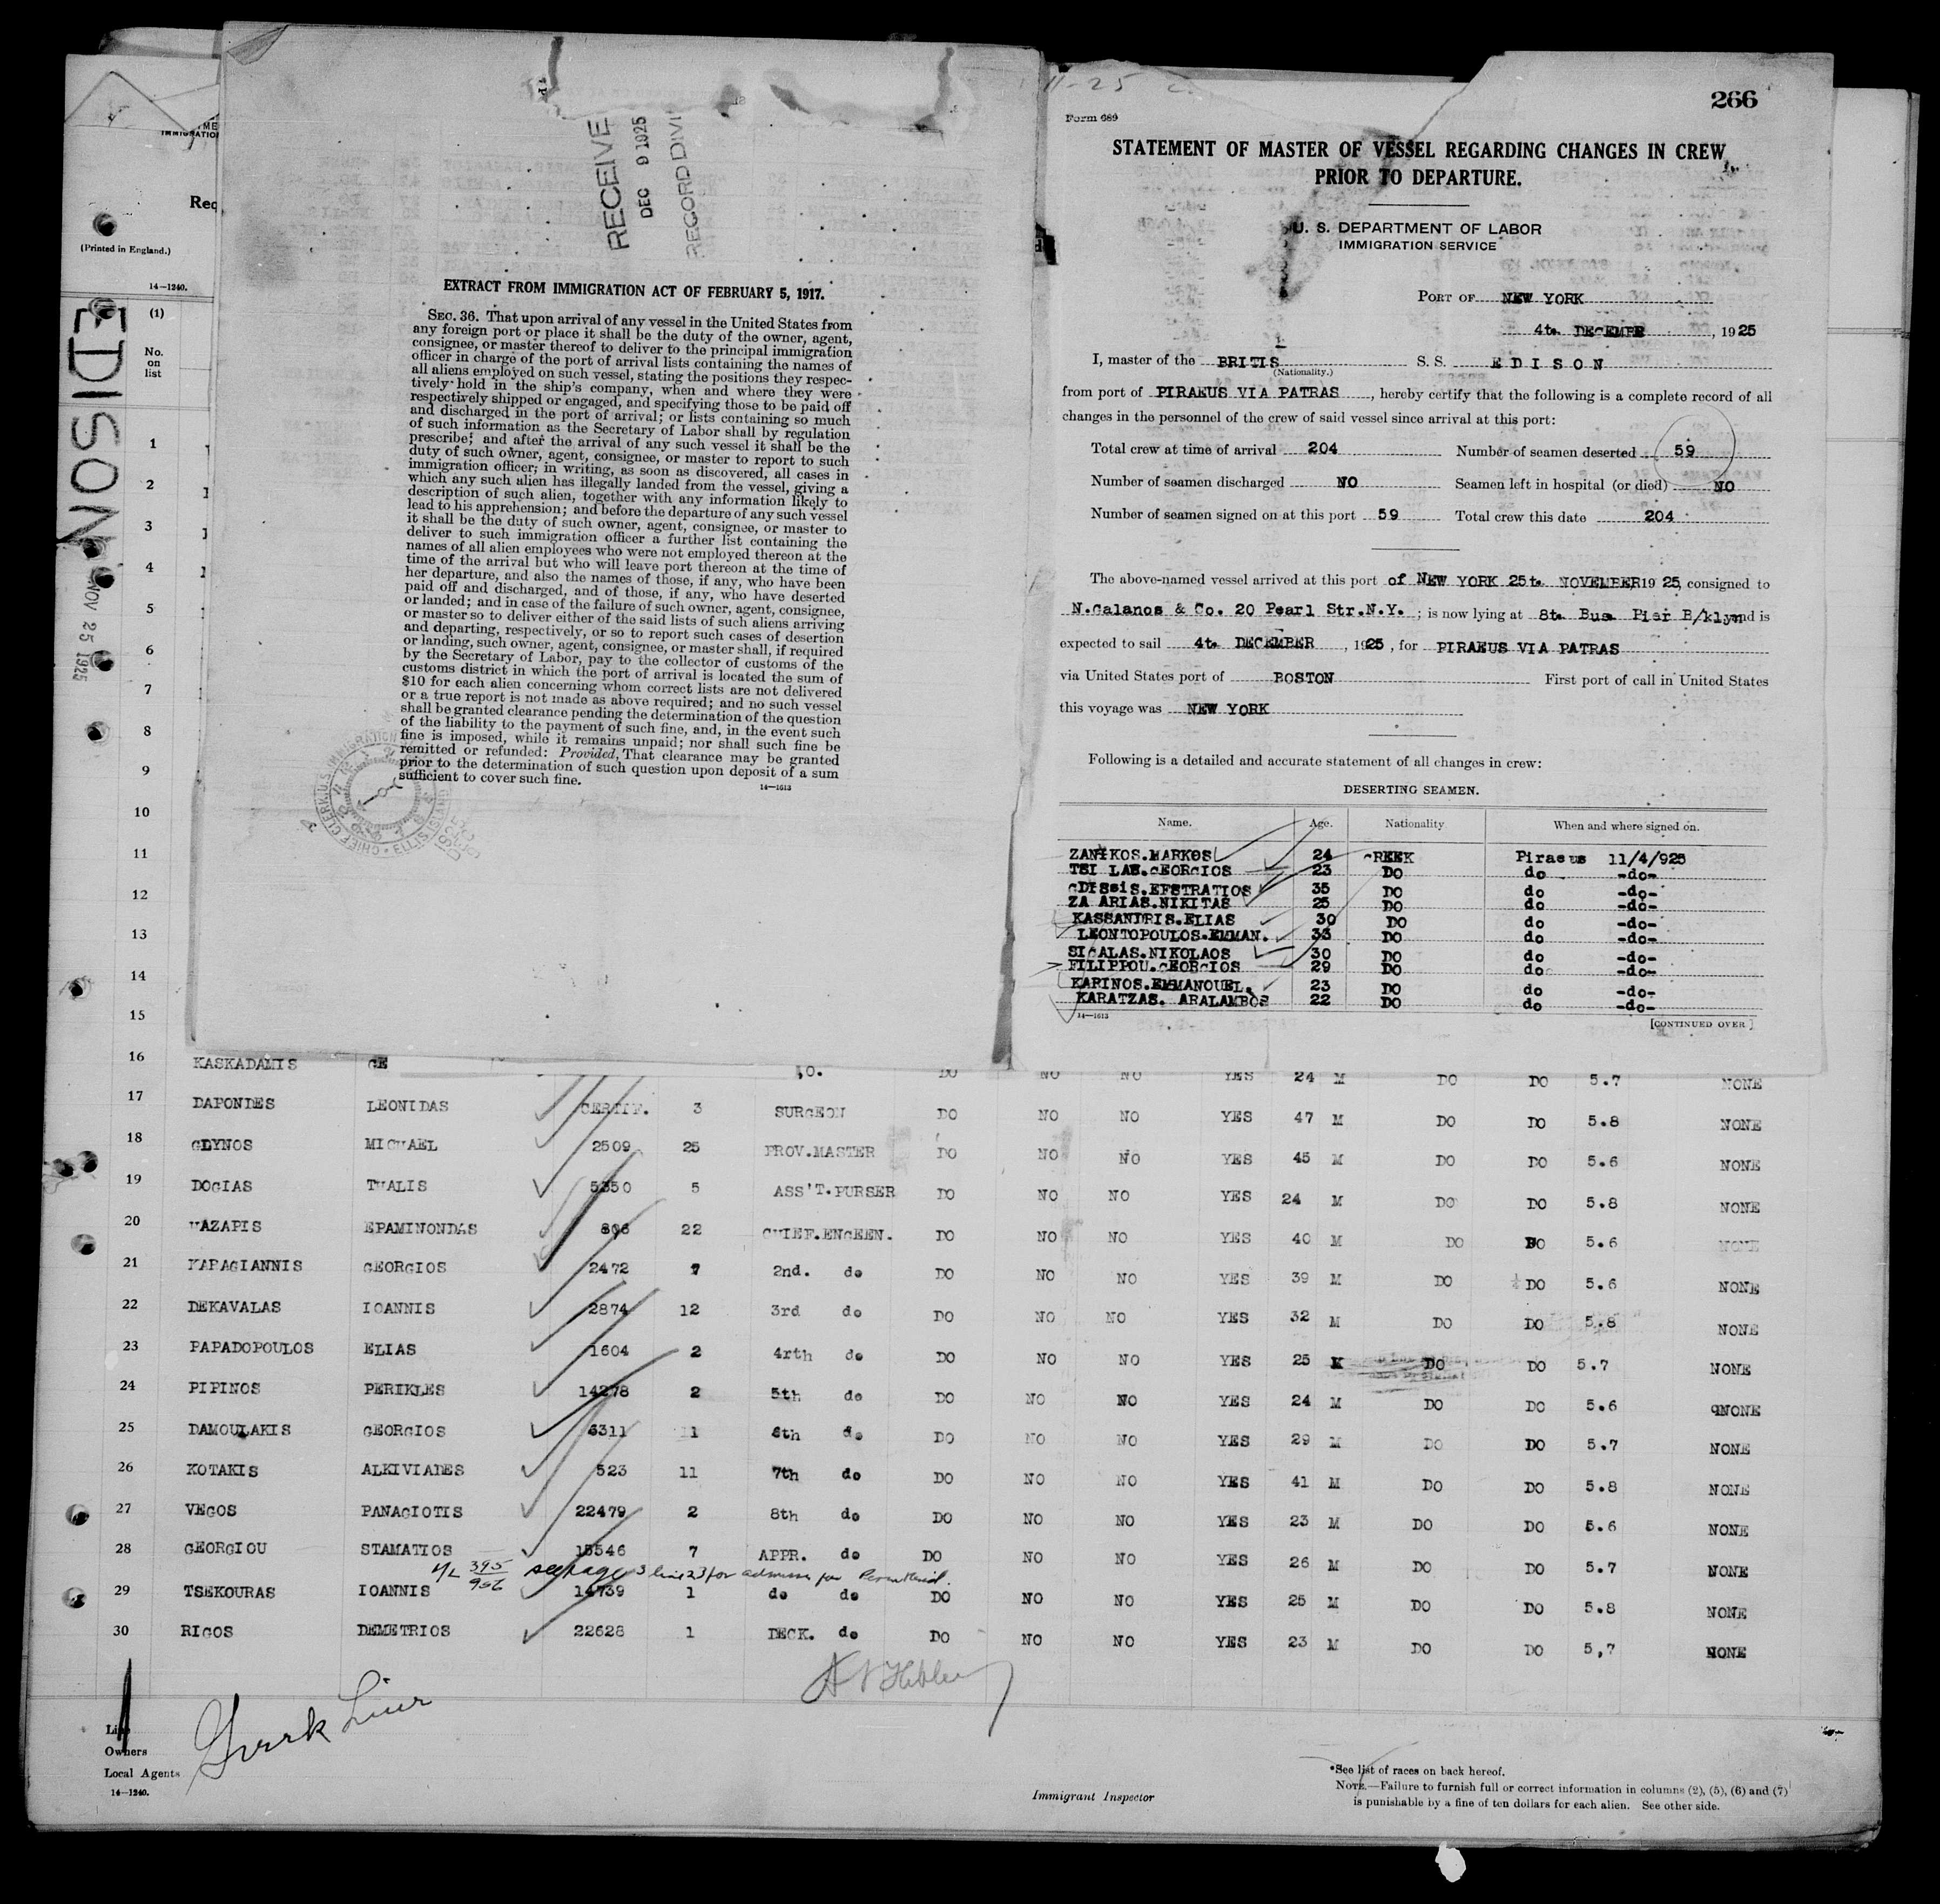 266
11-25
Form 689
STATEMENT OF MASTER OF VESSEL REGARDING CHANGES IN CREW
PRIOR TO DEPARTURE.
U. S. DEPARTMENT OF LABOR
IMMIGRATION SERVICE
PORT OF NEW YORK
4t. DECEMBE , 1925
I, master of the BRITIS S. S. EDISON
(Nationality.)
from port of PIRAEUS VIA PATRAS , hereby certify that the following is a complete record of all
changes in the personnel of the crew of said vessel since arrival at this port:
Total crew at time of arrival 204 Number of seamen deserted 59
Number of seamen discharged NO Seamen left in hospital (or died) NO
Number of seamen signed on at this port 59 Total crew this date 204
The above-named vessel arrived at this port of NEW YORK 25t. NOVEMBER 1925, consigned to
N.Galanos & Co. 20 Pearl Str.N.Y. ; is now lying at 8t. Bus. Pier B/klyn and is
expected to sail 4t. DECEMBER , 1925 , for PIRAEUS VIA PATRAS
via United States port of BOSTON First port of call in United States
this voyage was NEW YORK
Following is a detailed and accurate statement of all changes in crew:
DESERTING SEAMEN.
Name. Age. Nationality When and where signed on.
ZANIKOS.MARKOS 24 GREEK Piraeus 11/4/925
TSI LAS.GEORGIOS 23 DO do -do-
EFSTRATIOS 35 DO do -do-
ZA ARIAS.NIKITAS 25 DO do -do-
KASSANDRIS.ELIAS 30 DO do -do-
LEONTOPOULOS.EMMAN. 33 DO do -do-
SIGALAS.NIKOLAOS 30 DO do -do-
FILIPPOU.GEORGIOS 29 DO do -do-
KARINOS.EMMANOUEL. 23 DO do -do-
KARATZAS. ARALAMBOS 22 DO do -do-
14—1613
[CONTINUED OVER.]
RECEIVE
DEC 9 1925
RECORD DIVI
EXTRACT FROM IMMIGRATION ACT OF FEBRUARY 5, 1917.
SEC. 36. That upon arrival of any vessel in the United States from
any foreign port or place it shall be the duty of the owner, agent,
consignee, or master thereof to deliver to the principal immigration
officer in charge of the port of arrival lists containing the names of
all aliens employed on such vessel, stating the positions they respec-
tively hold in the ship's company, when and where they were
respectively shipped or engaged, and specifying those to be paid off
and discharged in the port of arrival; or lists containing so much
of such information as the Secretary of Labor shall by regulation
prescribe; and after the arrival of any such vessel it shall be the
duty of such owner, agent, consignee, or master to report to such
immigration officer, in writing, as soon as discovered, all cases in
which any such alien has illegally landed from the vessel, giving a
description of such alien, together with any information likely to
lead to his apprehension; and before the departure of any such vessel
it shall be the duty of such owner, agent, consignee, or master to
deliver to such immigration officer a further list containing the
names of all alien employees who were not employed thereon at the
time of the arrival but who will leave port thereon at the time of
her departure, and also the names of those, if any, who have been
paid off and discharged, and of those, if any, who have deserted
or landed; and in case of the failure of such owner, agent, consignee,
or master so to deliver either of the said lists of such aliens arriving
and departing, respectively, or so to report such cases of desertion
or landing, such owner, agent, consignee, or master shall, if required
by the Secretary of Labor, pay to the collector of customs of the
customs district in which the port of arrival is located the sum of
$10 for each alien concerning whom correct lists are not delivered
or a true report is not made as above required; and no such vessel
shall be granted clearance pending the determination of the question
of the liability to the payment of such fine, and, in the event such
fine is imposed, while it remains unpaid; nor shall such fine be
remitted or refunded: Provided, That clearance may be granted
prior to the determination of such question upon deposit of a sum
sufficient to cover such fine.
14—1613
CHIEF CLERK, U.S. IMMIGRATION
ELLIS ISLAND
Req
(Printed in England.)
14—1240.
EDISON
NOV 25 1925
(1)
No.
on
list
1
2
3
4
5
6
7
8
9
10
11
12
13
14
15
16 KASKADAMIS GE DO NO NO YES 24 M DO DO 5.7 NONE
17 DAPONDES LEONIDAS CERTIF. 3 SURGEON DO NO NO YES 47 M DO DO 5.8 NONE
18 GLYNOS MICHAEL 2509 25 PROV.MASTER DO NO NO YES 45 M DO DO 5.6 NONE
19 DOGIAS THALIS 5350 5 ASS'T.PURSER DO NO NO YES 24 M DO DO 5.8 NONE
20 HAZAPIS EPAMINONDAS 806 22 CHIEF.ENGEEN. DO NO NO YES 40 M DO DO 5.6 NONE
21 KARAGIANNIS GEORGIOS 2472 7 2nd. do DO NO NO YES 39 M DO DO 5.6 NONE
22 DEKAVALAS IOANNIS 2874 12 3rd do DO NO NO YES 32 M DO DO 5.8 NONE
23 PAPADOPOULOS ELIAS 1604 2 4rth do DO NO NO YES 25 M DO DO 5.7 NONE
24 PIPINOS PERIKLES 14278 2 5th do DO NO NO YES 24 M DO DO 5.6 NONE
25 DAMOULAKIS GEORGIOS 6311 11 6th do DO NO NO YES 29 M DO DO 5.7 NONE
26 KOTAKIS ALKIVIADES 523 11 7th do DO NO NO YES 41 M DO DO 5.8 NONE
27 VEGOS PANAGIOTIS 22479 2 8th do DO NO NO YES 23 M DO DO 5.6 NONE
28 GEORGIOU STAMATIOS 15546 7 APPR. do DO NO NO YES 26 M DO DO 5.7 NONE
395/956 see page 3 line 23 for
29 TSEKOURAS IOANNIS 14739 1 do do DO NO NO YES 25 M DO DO 5.8 NONE
30 RIGOS DEMETRIOS 22628 1 DECK. do DO NO NO YES 23 M DO DO 5,7 NONE
Line
Greek Line
Owners
Local Agents
14—1240.
Immigrant Inspector
*See list of races on back hereof.
NOTE.—Failure to furnish full or correct information in columns (2), (5), (6) and (7)
is punishable by a fine of ten dollars for each alien. See other side.